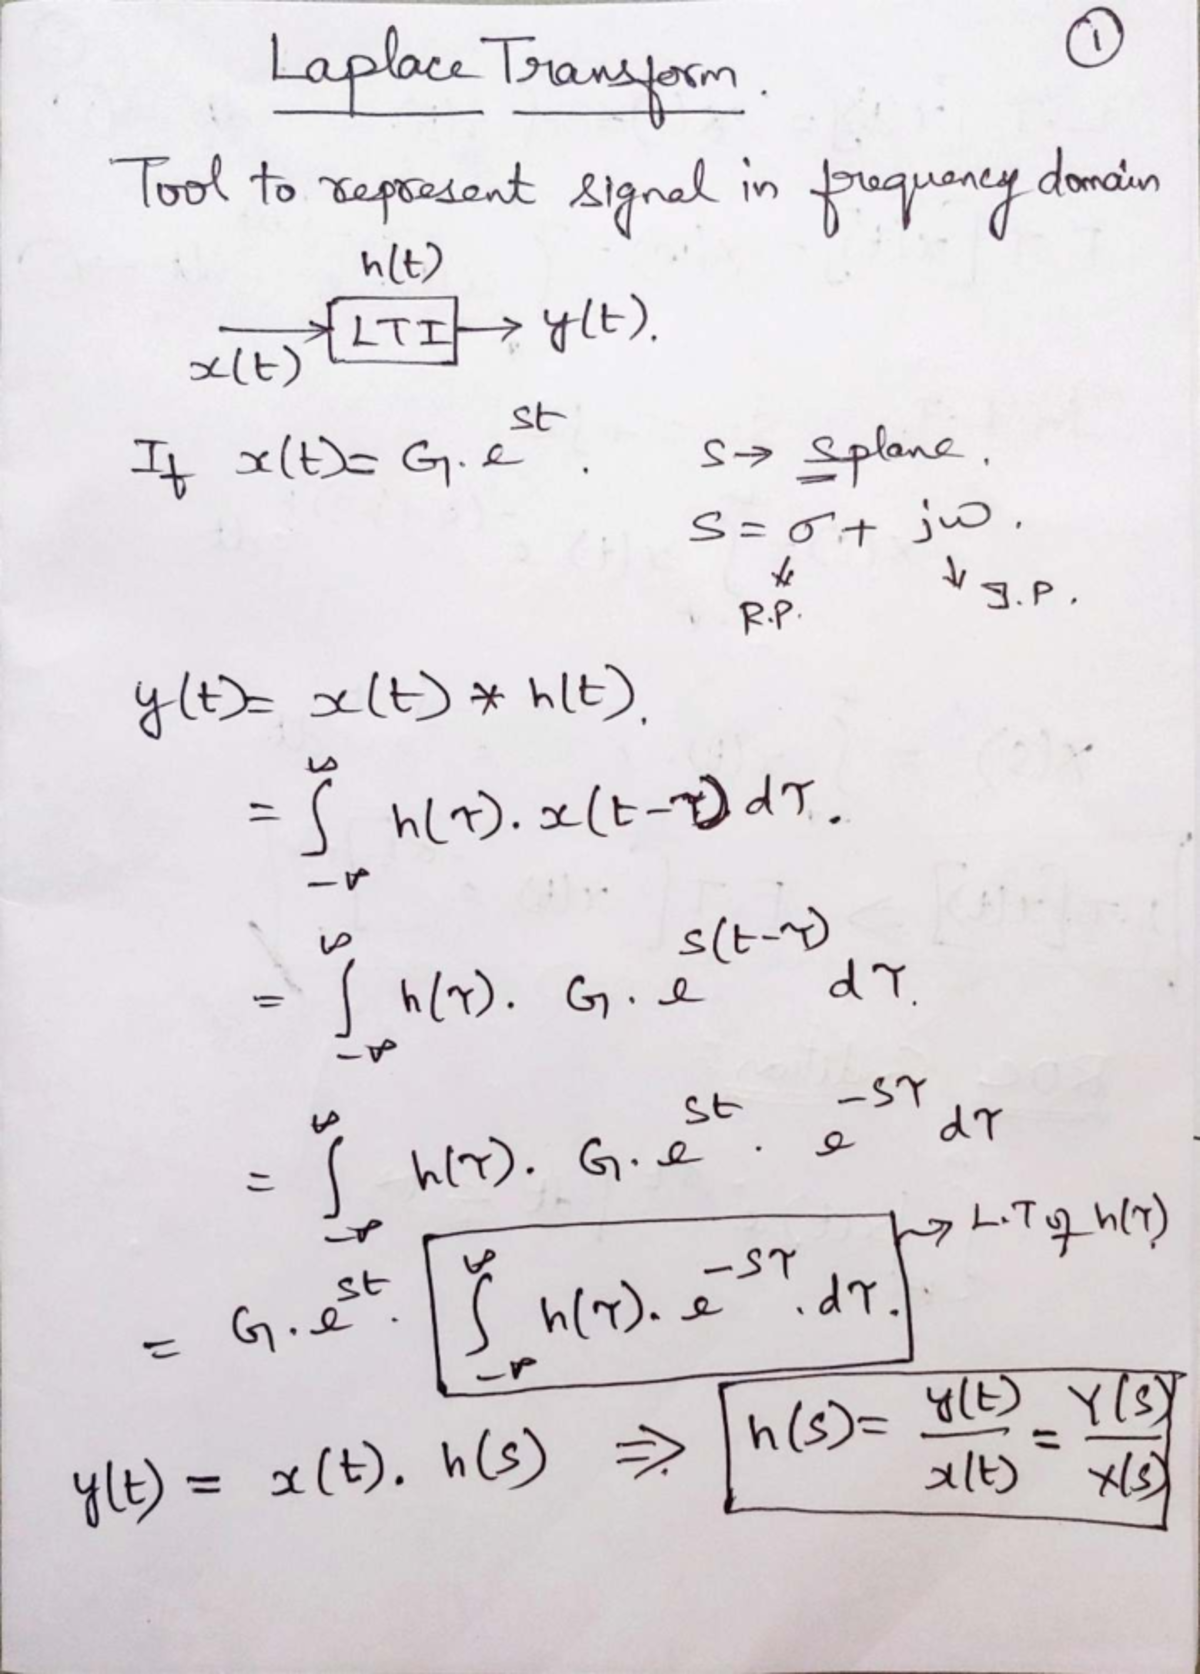 Laplace Transform.
①
Tool to represent signal in frequency domain
h(t)
x(t) → LTI → y(t).
If x(t) = G.e^{st}. s → s plane.
s = σ + jω.
R.P. I.P.
y(t) = x(t) * h(t).
= ∫_{-∞}^{∞} h(τ). x(t-τ) dτ.
= ∫_{-∞}^{∞} h(τ). G. e^{s(t-τ)} dτ.
= ∫_{-∞}^{∞} h(τ). G. e^{st}. e^{-sτ} dτ
→ L.T of h(τ)
= G. e^{st}. ∫_{-∞}^{∞} h(τ). e^{-sτ}. dτ.
y(t) = x(t). h(s) ⇒ h(s) = y(t)/x(t) = Y(s)/X(s)